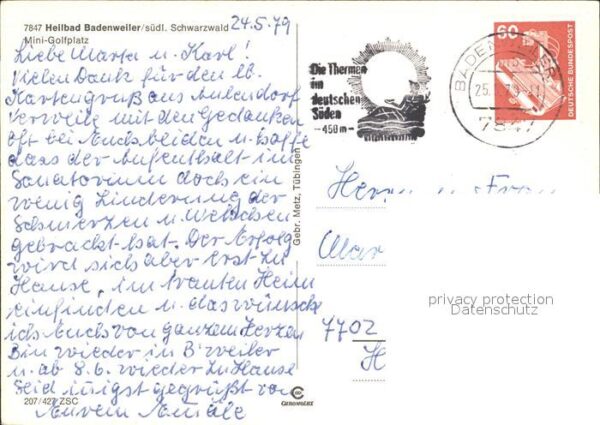 7847 Heilbad Badenweiler/südl. Schwarzwald
Mini-Golfplatz
24.5.79
Liebe Marta u. Karl!
Vielen Dank für den lb.
Kartengruß aus Aulendorf
Verweile mit den Gedanken
oft bei Euch beiden u. hoffe
dass der Aufenthalt im
Sanatorium doch ein
wenig Linderung der
Schmerzen u.
gebracht hat. Der Erfolg
wird sich aber erst zu
Hause, im trauten Heim
einfinden u. das wünsche
ich Euch von ganzem Herzen
Bin wieder in B'weiler
u. ab 8.6. wieder zu Hause
Seid innigst gegrüßt von
Eurem
207/427 ZSC
Gebr. Metz, Tübingen
CEKOMATEX
Die Thermen
im
deutschen
Süden
- 450 m -
BADENWEILER
25.
7847
60
DEUTSCHE BUNDESPOST
Herrn u. Frau
Mar
7702
H
privacy protection
Datenschutz